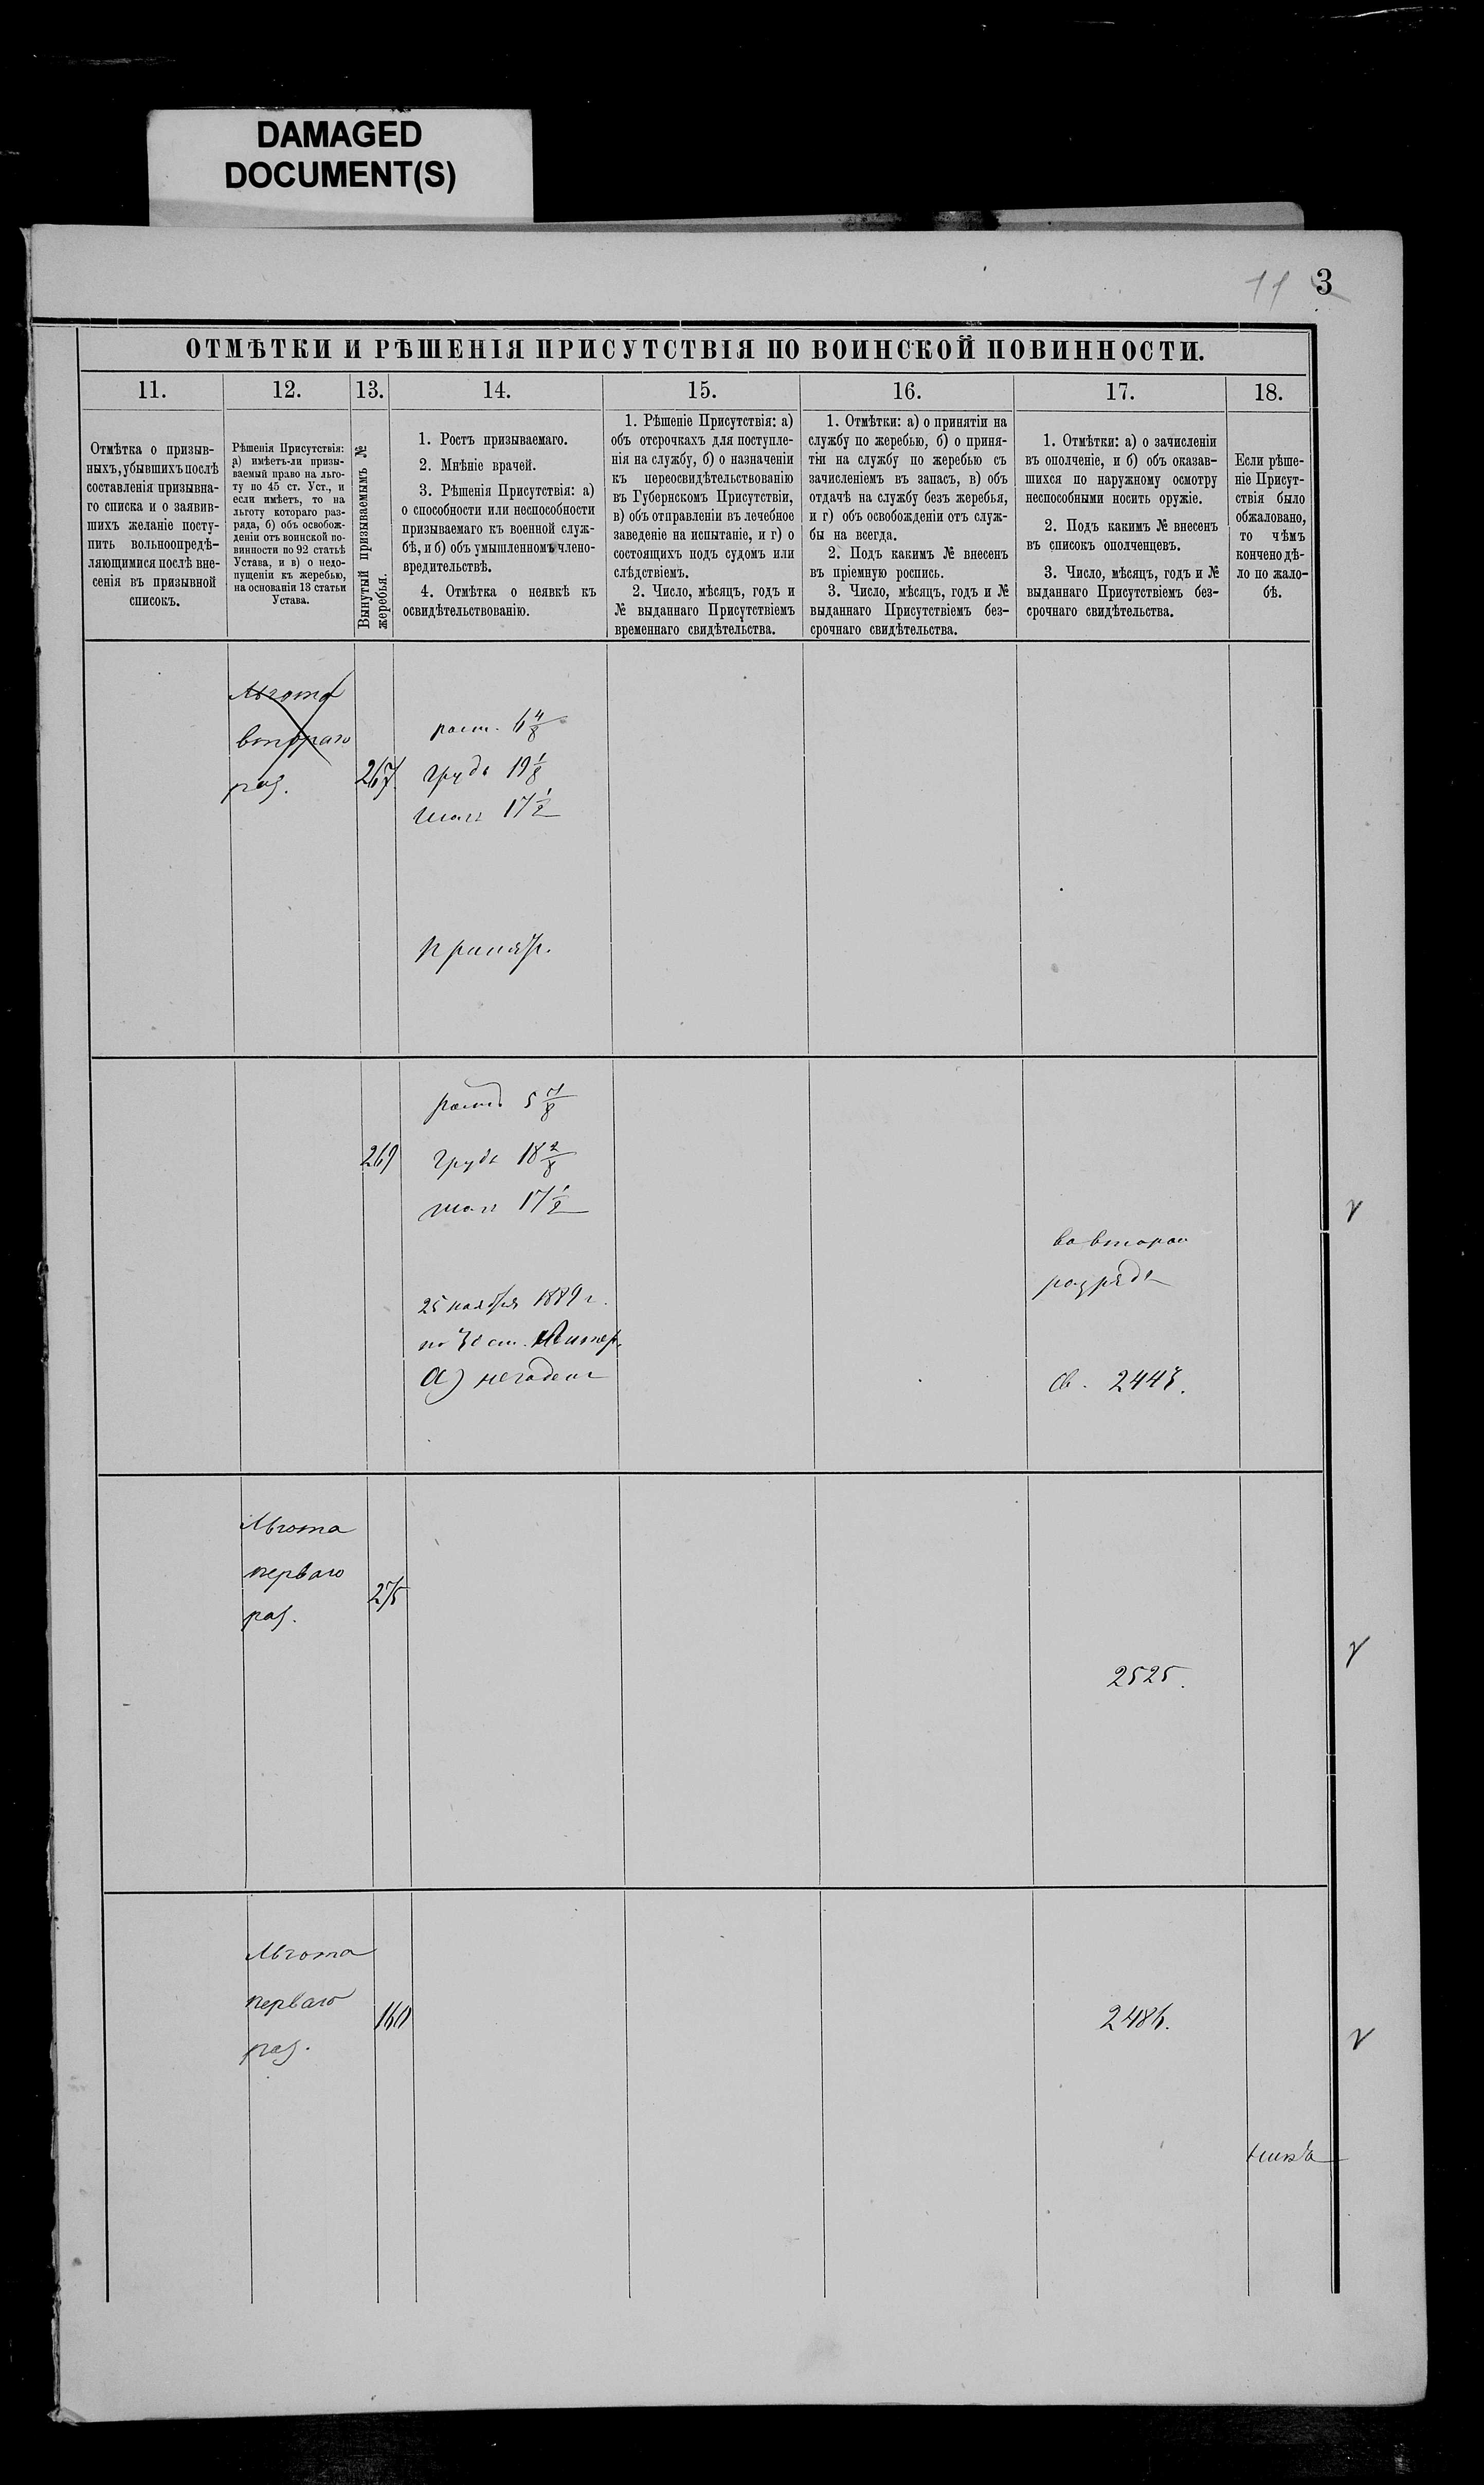 DAMAGED
DOCUMENT(S)
11 3
ОТМѢТКИ И РѢШЕНІЯ ПРИСУТСТВІЯ ПО ВОИНСКОЙ ПОВИННОСТИ.
11.
Отмѣтка о призыв-
ныхъ, убывшихъ послѣ
составленія призывна-
го списка и о заявив-
шихъ желаніе посту-
пить вольноопредѣ-
ляющимися послѣ вне-
сенія въ призывной
списокъ.
12.
Рѣшенія Присутствія:
а) имѣетъ-ли призы-
ваемый право на льго-
ту по 45 ст. Уст., и
если имѣетъ, то на
льготу котораго раз-
ряда, б) объ освобож-
деніи отъ воинской по-
винности по 92 статьѣ
Устава, и в) о недо-
пущеніи къ жеребью,
на основаніи 13 статьи
Устава.
13.
Вынутый призываемымъ №
жеребья.
14.
1. Ростъ призываемаго.
2. Мнѣніе врачей.
3. Рѣшенія Присутствія: а)
о способности или неспособности
призываемаго къ военной служ-
бѣ, и б) объ умышленномъ члено-
вредительствѣ.
4. Отмѣтка о неявкѣ къ
освидѣтельствованію.
15.
1. Рѣшеніе Присутствія: а)
объ отсрочкахъ для поступле-
нія на службу, б) о назначеніи
къ переосвидѣтельствованію
въ Губернскомъ Присутствіи,
в) объ отправленіи въ лечебное
заведеніе на испытаніе, и г) о
состоящихъ подъ судомъ или
слѣдствіемъ.
2. Число, мѣсяцъ, годъ и
№ выданнаго Присутствіемъ
временнаго свидѣтельства.
16.
1. Отмѣтки: а) о принятіи на
службу по жеребью, б) о приня-
тіи на службу по жеребью съ
зачисленіемъ въ запасъ, в) объ
отдачѣ на службу безъ жеребья,
и г) объ освобожденіи отъ служ-
бы на всегда.
2. Подъ какимъ № внесенъ
въ пріемную роспись.
3. Число, мѣсяцъ, годъ и №
выданнаго Присутствіемъ без-
срочнаго свидѣтельства.
17.
1. Отмѣтки: а) о зачисленіи
въ ополченіе, и б) объ оказав-
шихся по наружному осмотру
неспособными носить оружіе.
2. Подъ какимъ № внесенъ
въ списокъ ополченцевъ.
3. Число, мѣсяцъ, годъ и №
выданнаго Присутствіемъ без-
срочнаго свидѣтельства.
18.
Если рѣше-
ніе Присут-
ствія было
обжаловано,
то чѣмъ
кончено дѣ-
ло по жало-
бѣ.
Льгота
втораго
раз.
267.
рост. 6 4/8
грудь 19 1/8
шаг 17 1/2
Принят.
269
ростъ 5 7/8
грудь 18 2/8
шаг 17 1/2
25 ноября 1889 г.
а) негоденъ
во второй
разрядъ
Св.
Льгота
перваго
раз.
275
2525.
Льгота
перваго
раз.
160
2486.